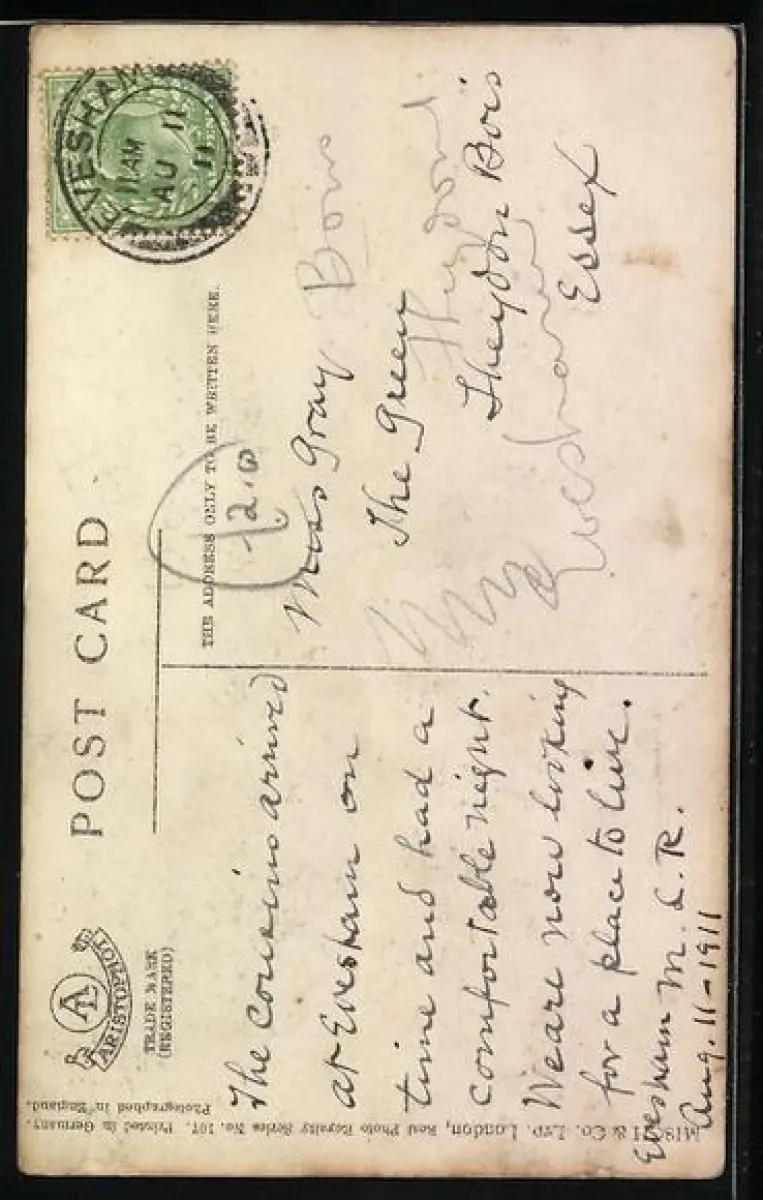 POST CARD
ARISTOPHOT
TRADE MARK
(REGISTERED)
EVESHAM
11 AM
AU 11
11
THE ADDRESS ONLY TO BE WRITTEN HERE.
12.0
The cousins arrived
at Evesham on
time and had a
comfortable night.
We are now looking
for a place to live.
Evesham M. L. R.
Aug. 11-1911
Miss Gray
The Green
Theydon Bois
Essex
Bois
Theydon
Evesham
& Co. LTD. London, Real Photo Royalty Series No. 107. Printed in Germany.
Photographed in England.